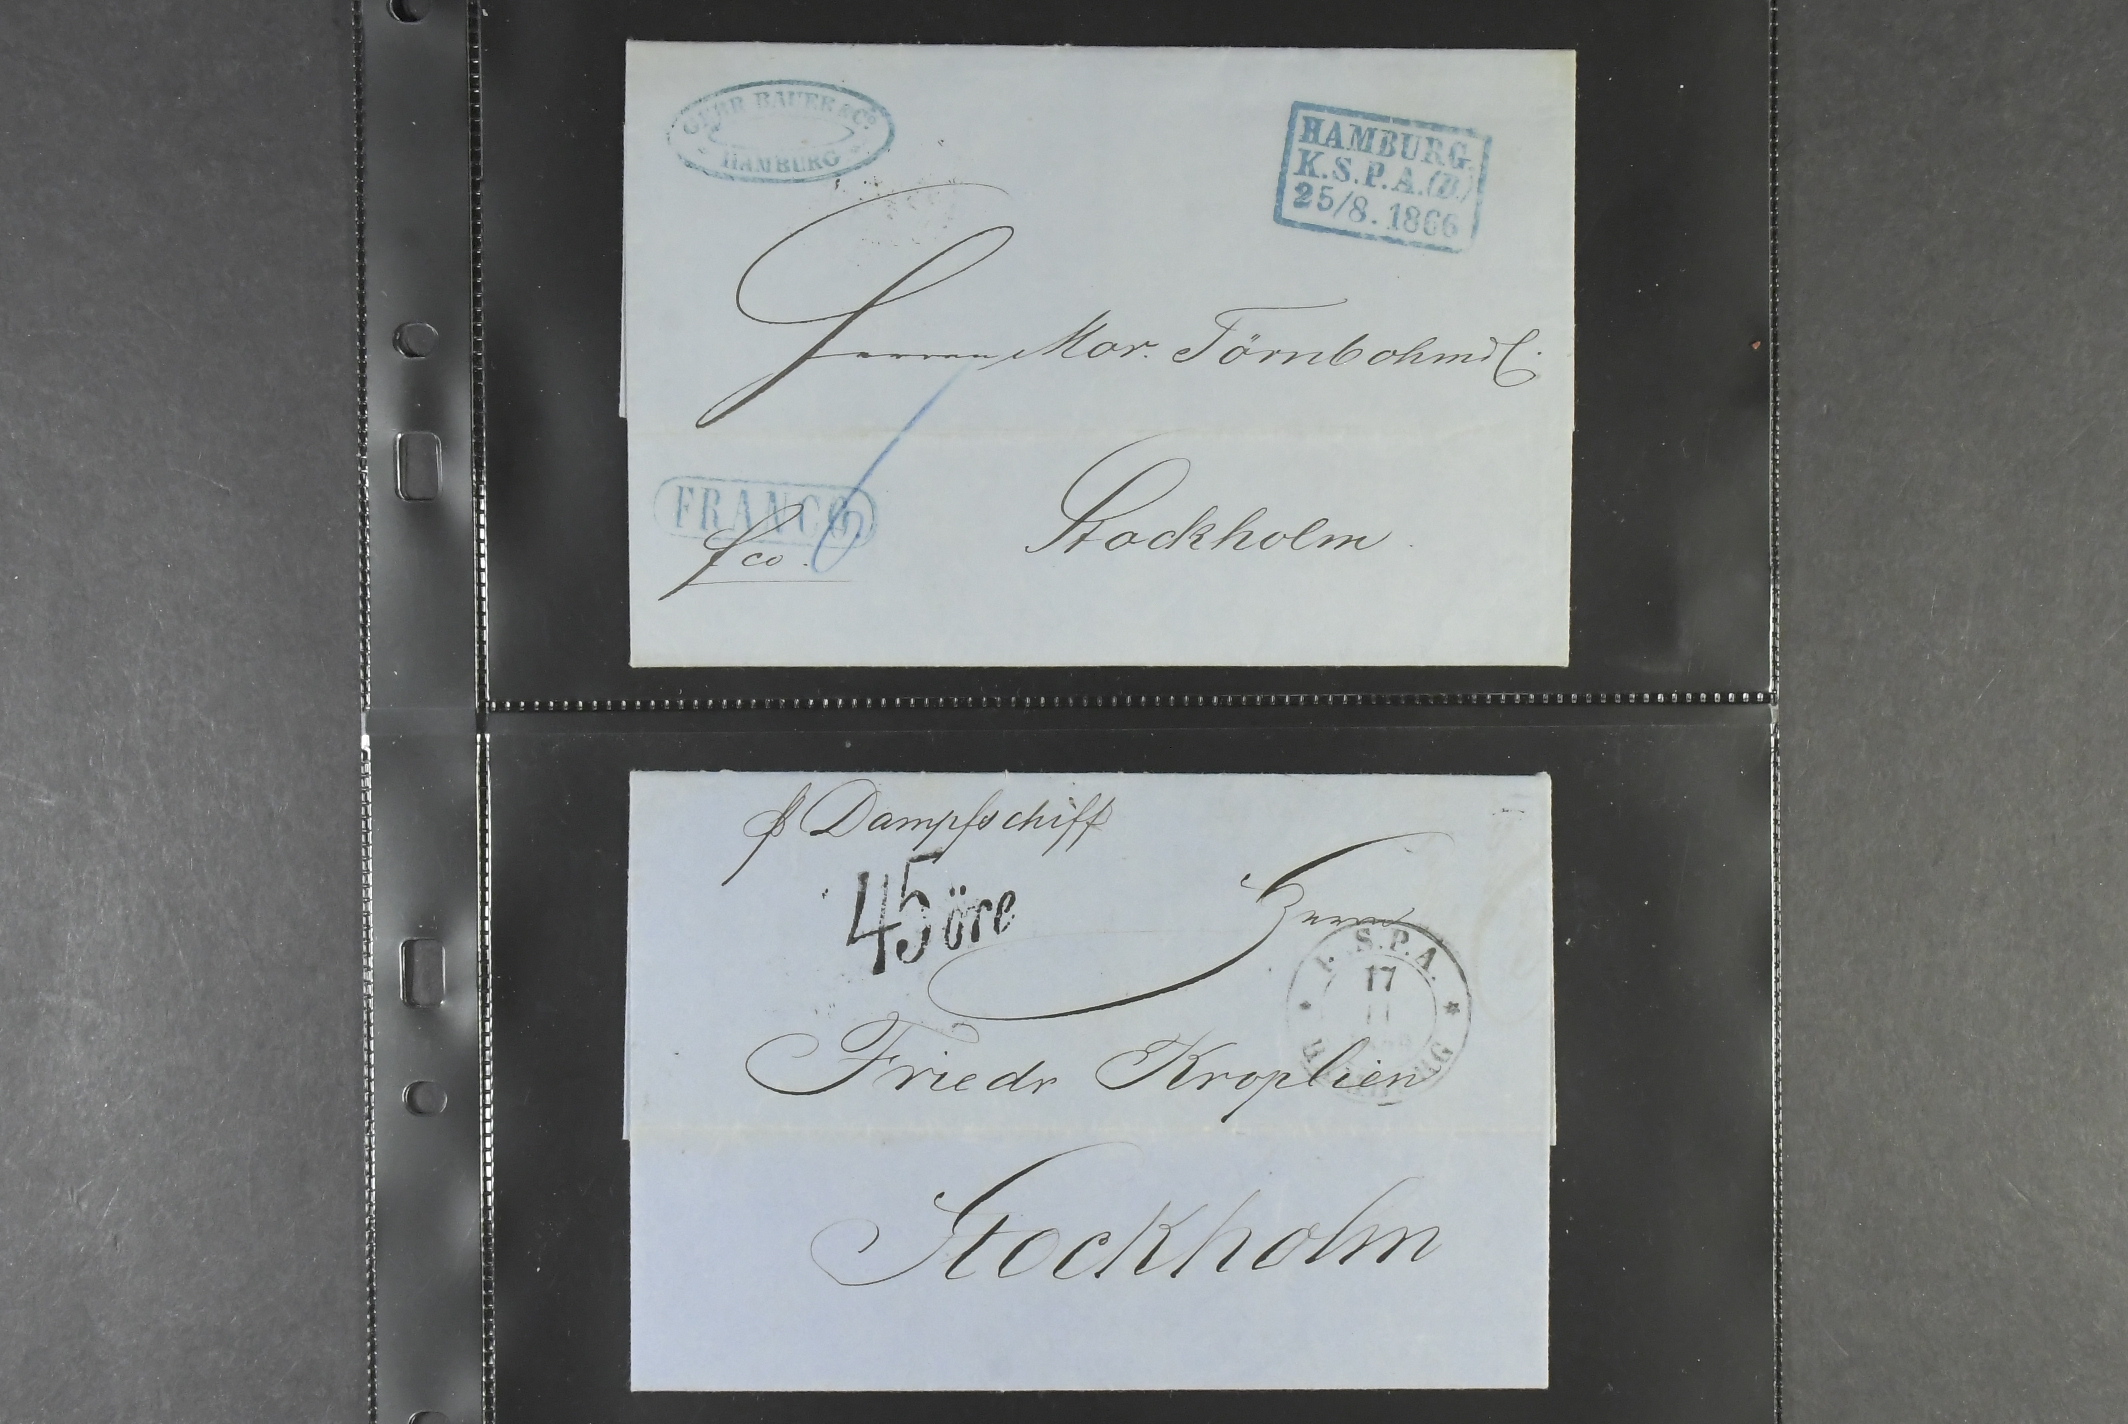 GEBR BAUER & Co.
HAMBURG
HAMBURG.
K.S.P.A.(D.)
25/8. 1866
Herren Mar. Törnbohm & C.
FRANCO
fco.
6
Stockholm.
p Dampfschiff
45 öre
Herrn
S.P.A.
17
11
Friedr Kroplien
Stockholm